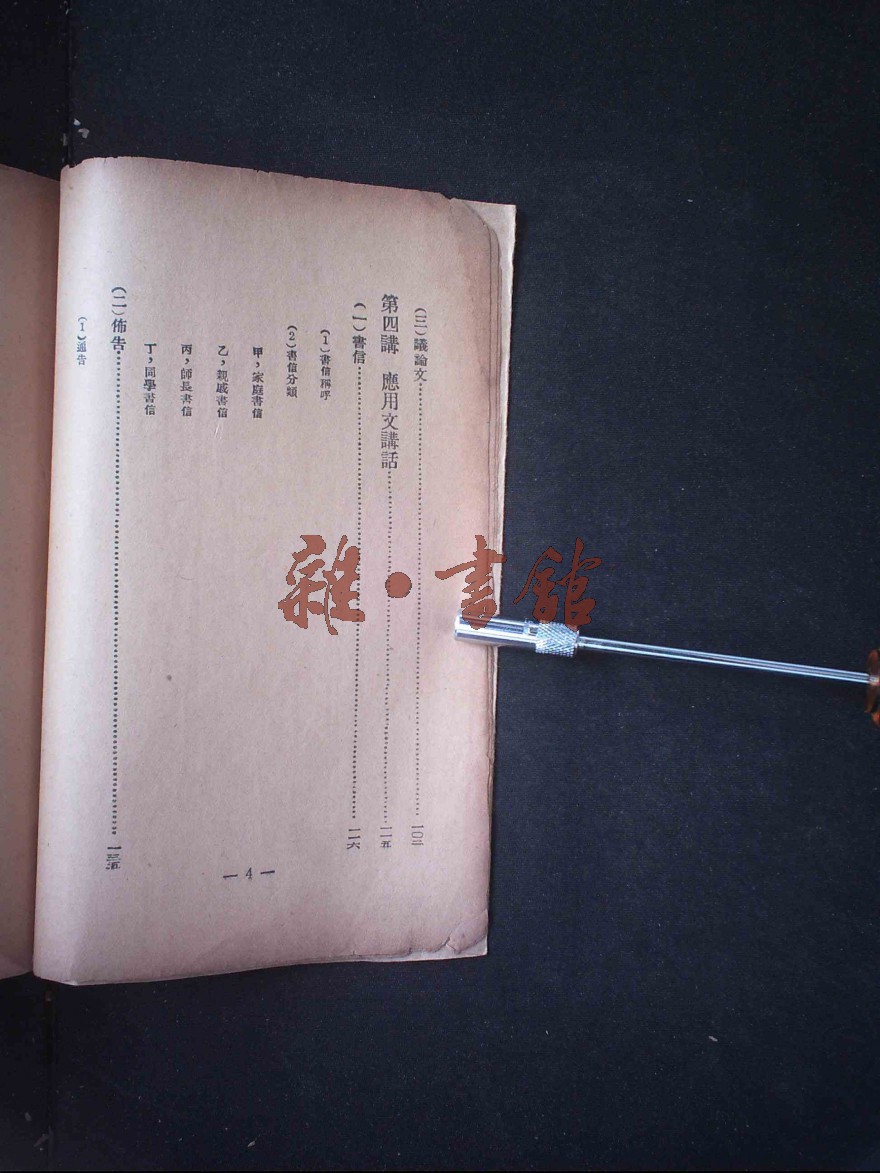 (三)議論文……一〇二
第四講 應用文講話……一一五
(一)書信……一一六
(1)書信稱呼
(2)書信分類
甲，家庭書信
乙，親戚書信
丙，師長書信
丁，同學書信
(二)佈告……一三五
(1)通告
— 4 —
雜·書館